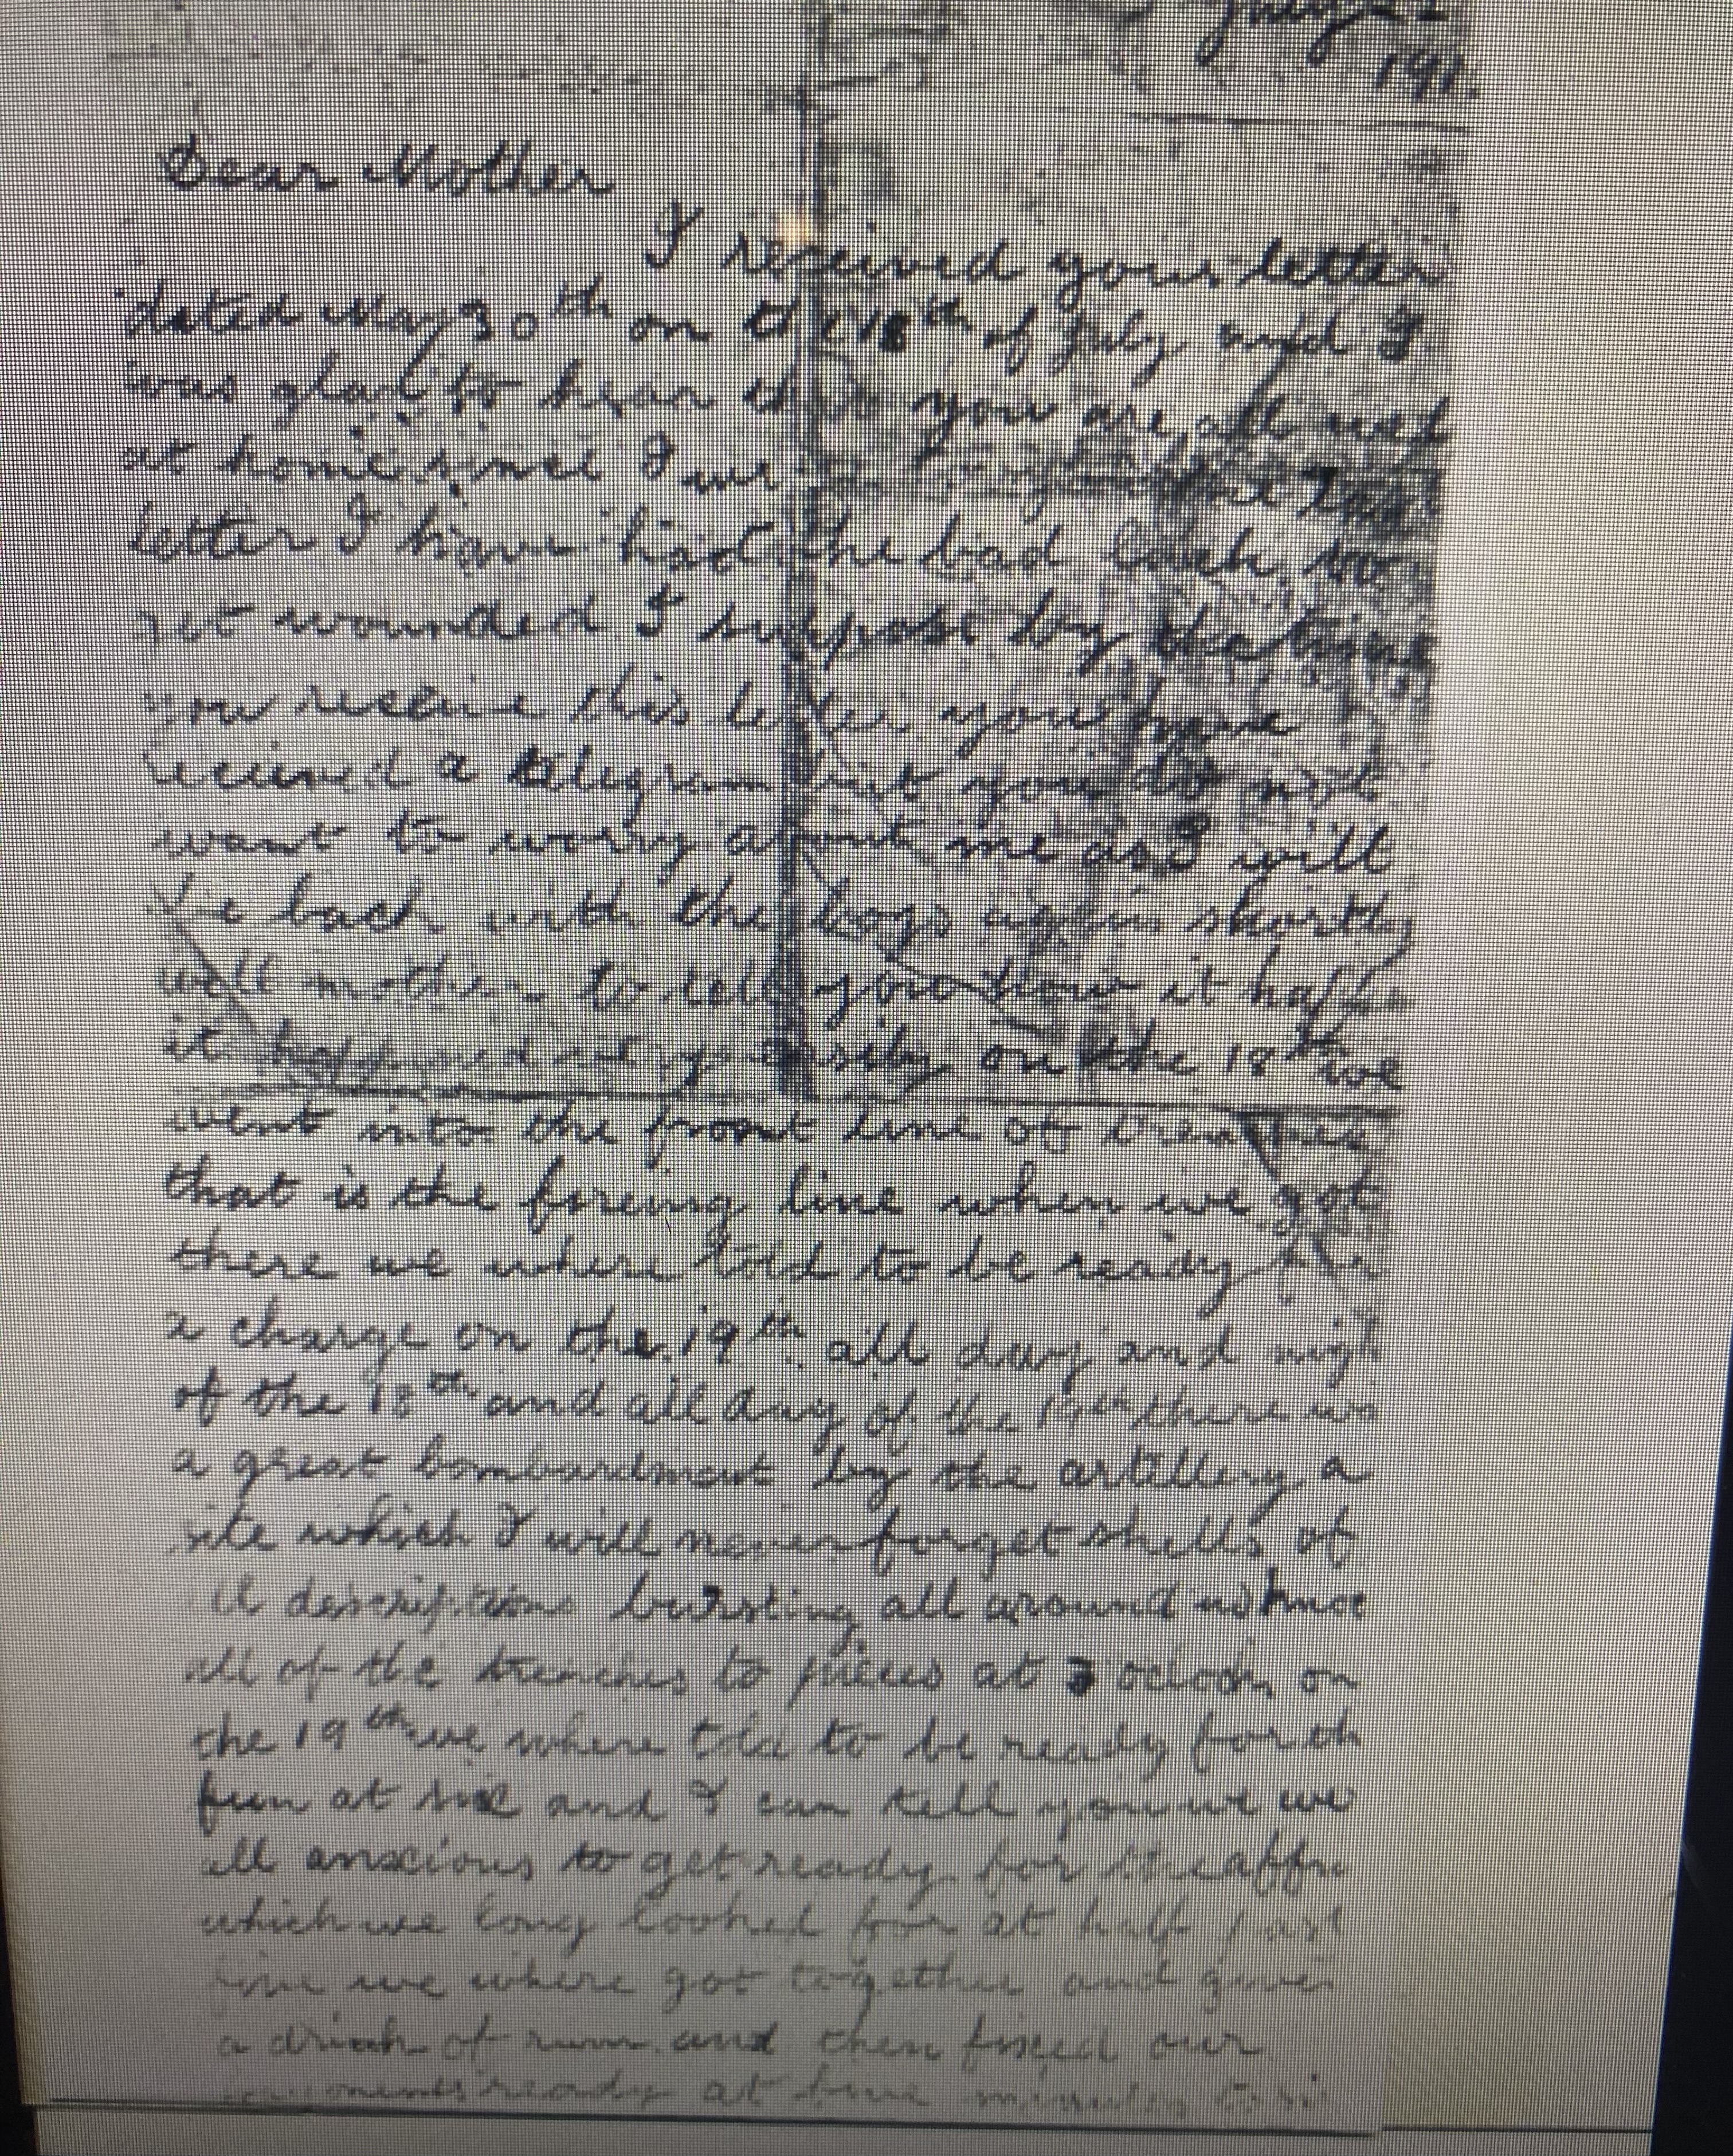 July 22
191
Dear Mother
I received your letter
dated May 30th on the 18th of July and I
was glad to hear that you are all well
at home since I last
letter I have had the bad luck to
get wounded I suppose by the time
you receive this letter you have
received a telegram but you do not
want to worry about me as I will
be back with the boys again shortly
well mother to tell you how it
it happened easily on the 18th we
went into the front line of trenches
that is the fireing line when we got
there we where told to be ready for
a charge on the 19th all day and nigh
of the 18th and all day of the 19th there wa
a great bombardment by the artillery a
site which I will never forget shells of
all descriptions bursting all around us
all of the trenches to pieces at 3 oclock on
the 19th we where told to be ready for th
fun at six and I can tell you we we
all anxious to get ready for the affa
which we long looked for at half past
five we where got together and given
a drink of rum and then fixed our
ready at five minutes to si